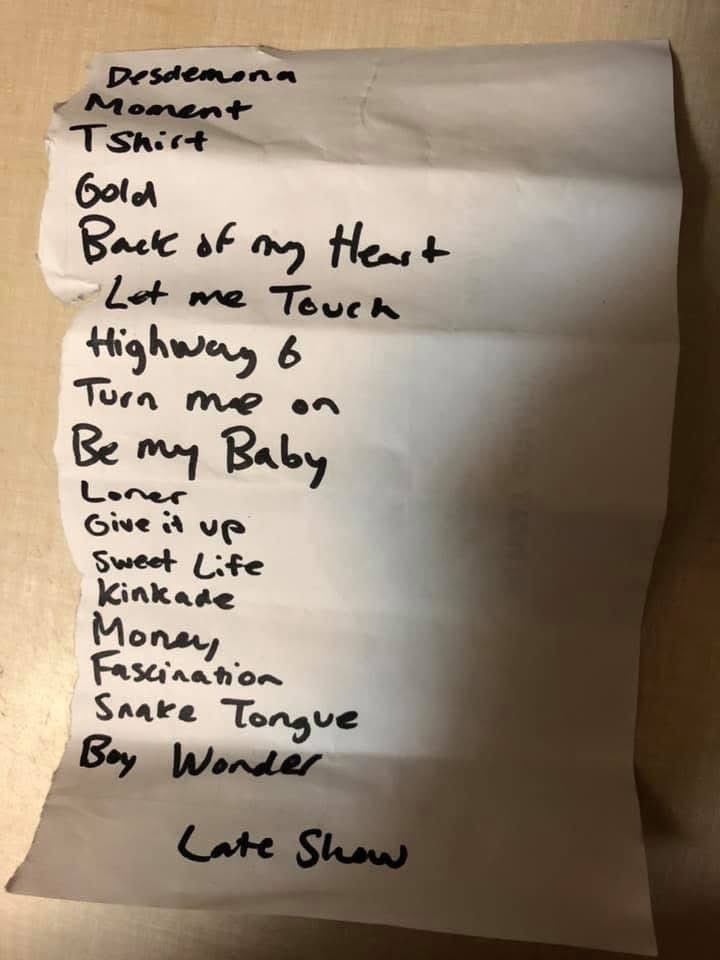 Desdemona
Moment
T Shirt
Gold
Back of my Heart
Let me Touch
Highway 6
Turn me on
Be my Baby
Loner
Give it up
Sweet Life
Kinkade
Money
Fascination
Snake Tongue
Boy Wonder
Late Show